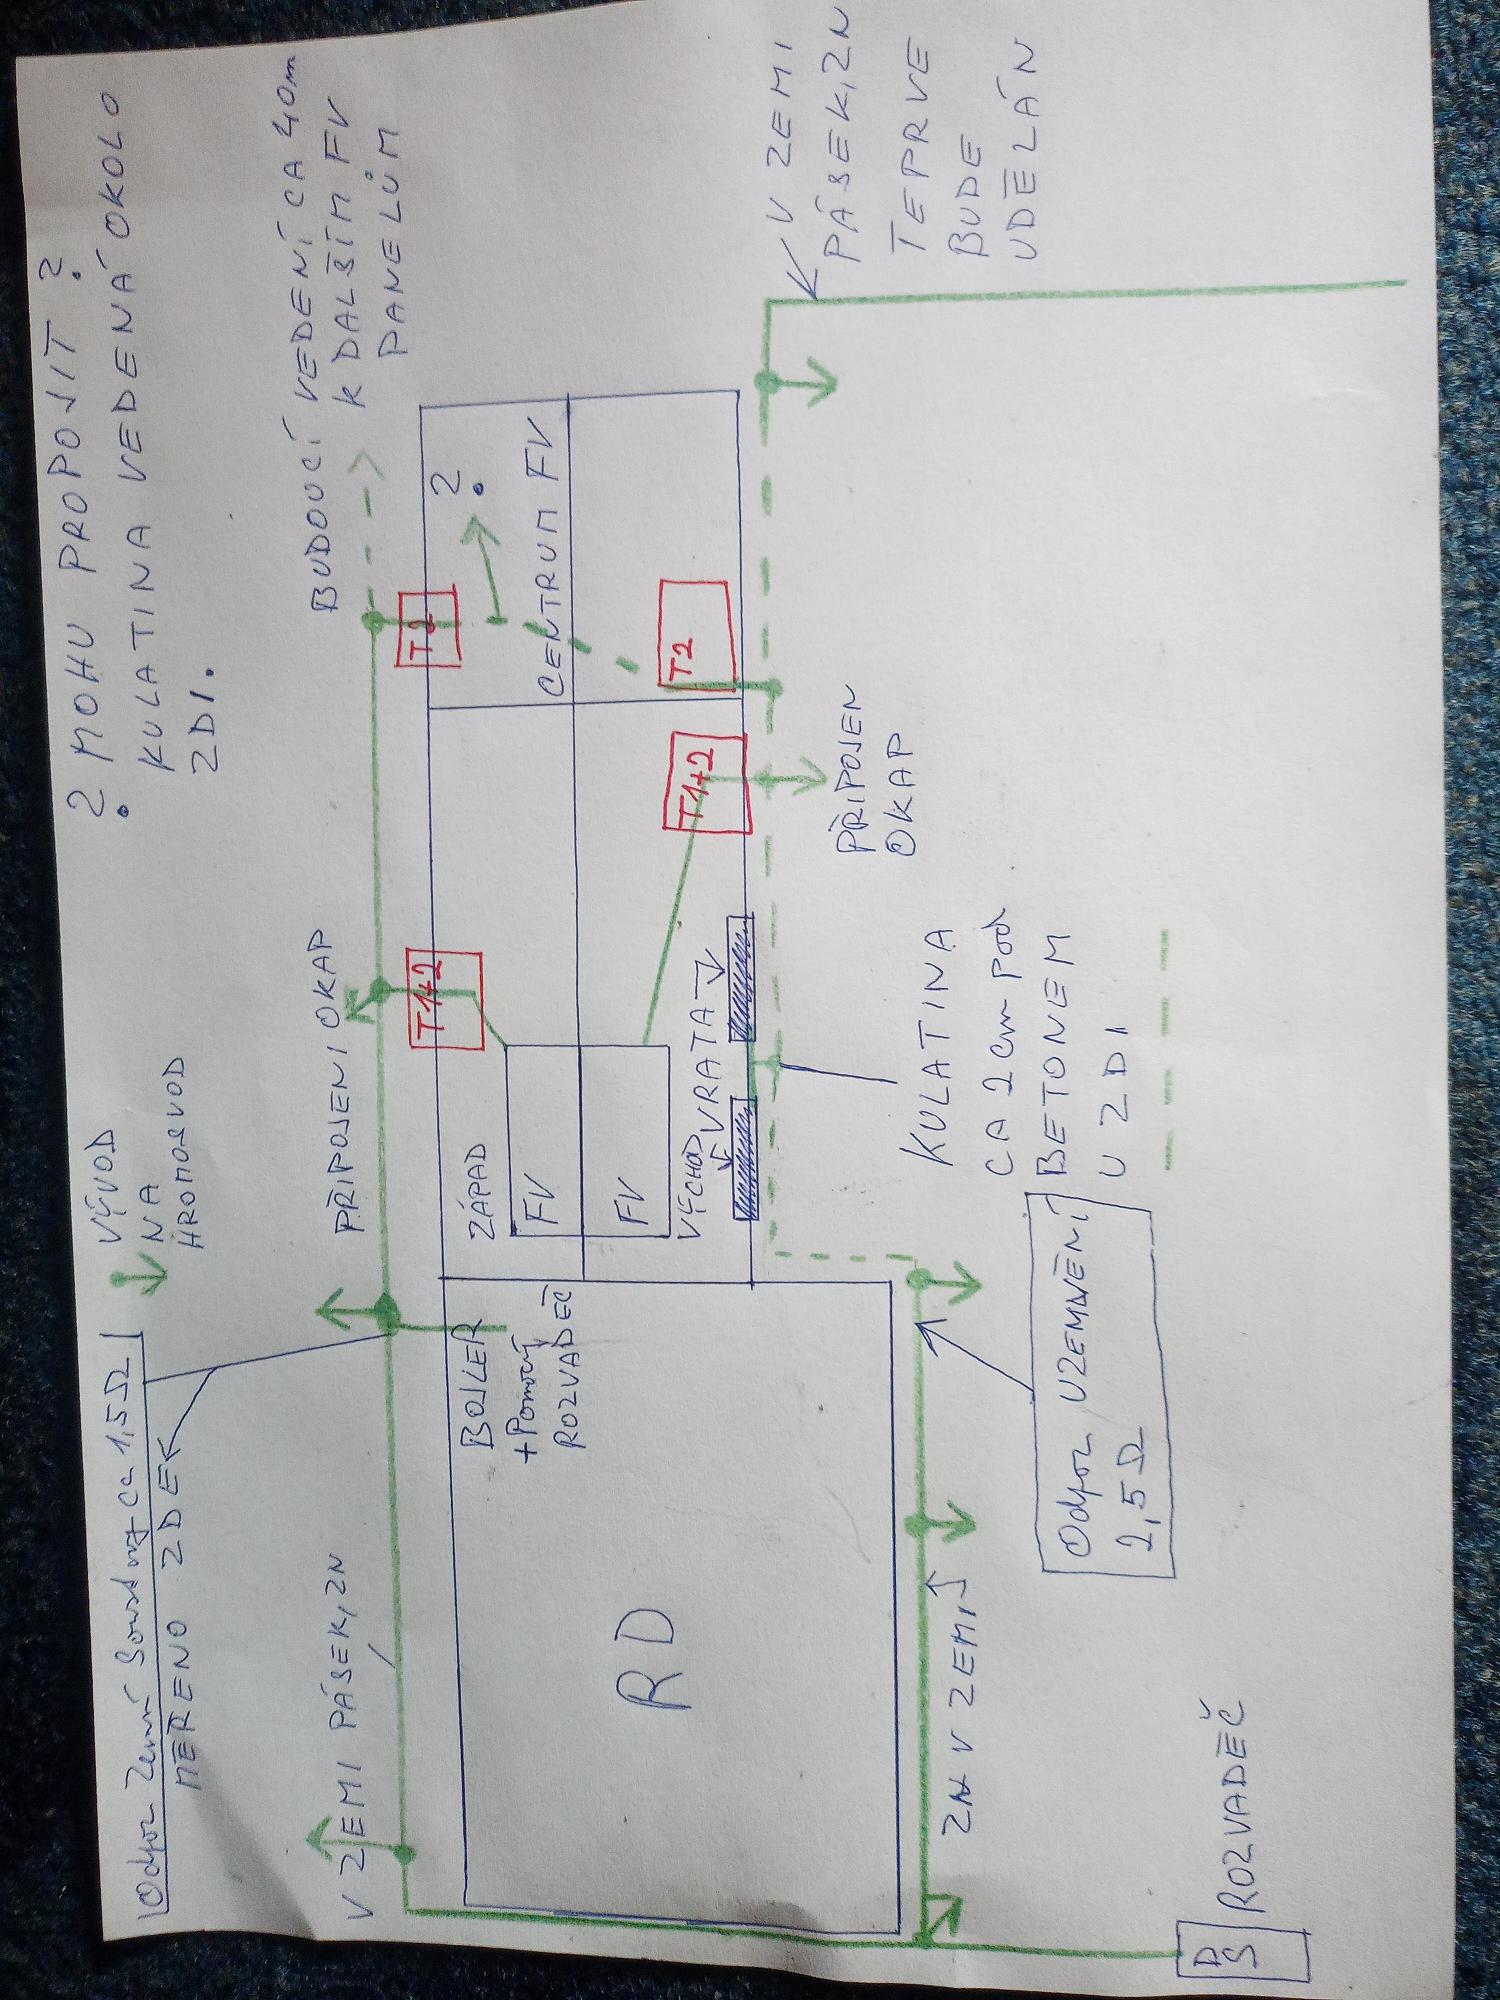 ? MOHU PROPOJIT ?
KULATINA VEDENÁ OKOLO
ZDI.
BUDOUCÍ VEDENÍ CA 40m
K DALŠÍM FV
PANELŮM
VÝVOD
NA
HROMOSVOD
Odpor Zemní Soustavy ca 1,5Ω
MĚŘENO ZDE
PŘIPOJENI OKAP
V ZEMI PÁSEK, ZN
T1+2
T2
?
CENTRUM FV
ZÁPAD
FV
FV
VÝCHOD
VRATA
T1+2
T2
BOJLER
+Pomocný
ROZVADĚČ
RD
V ZEMI
PÁSEK, ZN
TEPRVE
BUDE
UDĚLÁN
PŘIPOJEN
OKAP
KULATINA
CA 2cm pod
BETONEM
U ZDI
ZN V ZEMI
Odpor UZEMNĚNÍ
2,5Ω
PS
ROZVADĚČ